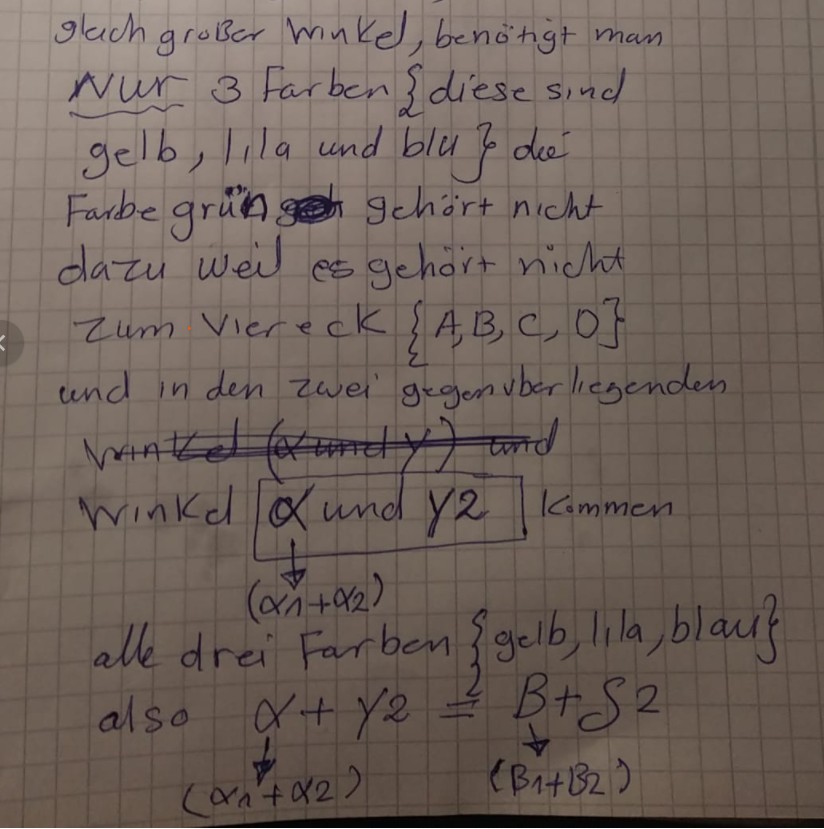 gleich großer Winkel, benötigt man
Nur 3 Farben {diese sind
gelb, lila und blu} die
Farbe grün gehört nicht
dazu weil es gehört nicht
zum Viereck {A, B, C, D}
und in den zwei gegenüberliegenden
Winkel (α und γ) und
Winkel α und γ2 kommen
(α1+α2)
alle drei Farben {gelb, lila, blau}
also α + γ2 = B + δ2
(α1+α2) (B1+B2)